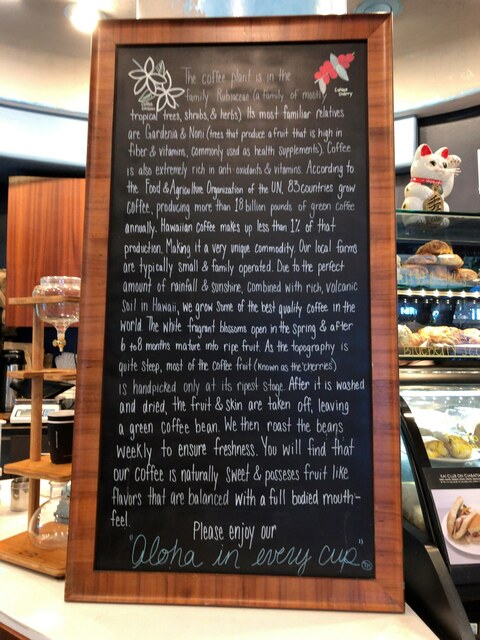 The coffee plant is in the
family Rubiaceae (a family of mostly
tropical trees, shrubs, & herbs) Its most familiar relatives
are Gardenia & Noni (trees that produce a fruit that is high in
fiber & vitamins, commonly used as health supplements). Coffee
is also extremely rich in anti-oxidants & vitamins. According to
the Food & Agriculture Organization of the UN, 83 countries grow
coffee, producing more than 18 billion pounds of green coffee
annually. Hawaiian coffee makes up less than 1% of that
production. Making it a very unique commodity. Our local farms
are typically small & family operated. Due to the perfect
amount of rainfall & sunshine, combined with rich, volcanic
soil in Hawaii, we grow some of the best quality coffee in the
world. The white fragrant blossoms open in the spring & after
6 to 8 months mature into ripe fruit. As the topography is
quite steep, most of the coffee fruit (known as the 'cherries)
is handpicked only at its ripest stage. After it is washed
and dried, the fruit & skin are taken off, leaving
a green coffee bean. We then roast the beans
weekly to ensure freshness. You will find that
our coffee is naturally sweet & posseses fruit like
flavors that are balanced with a full bodied mouth-
feel.
Please enjoy our
"Aloha in every cup"
Coffee
Blossoms
Coffee
Cherry